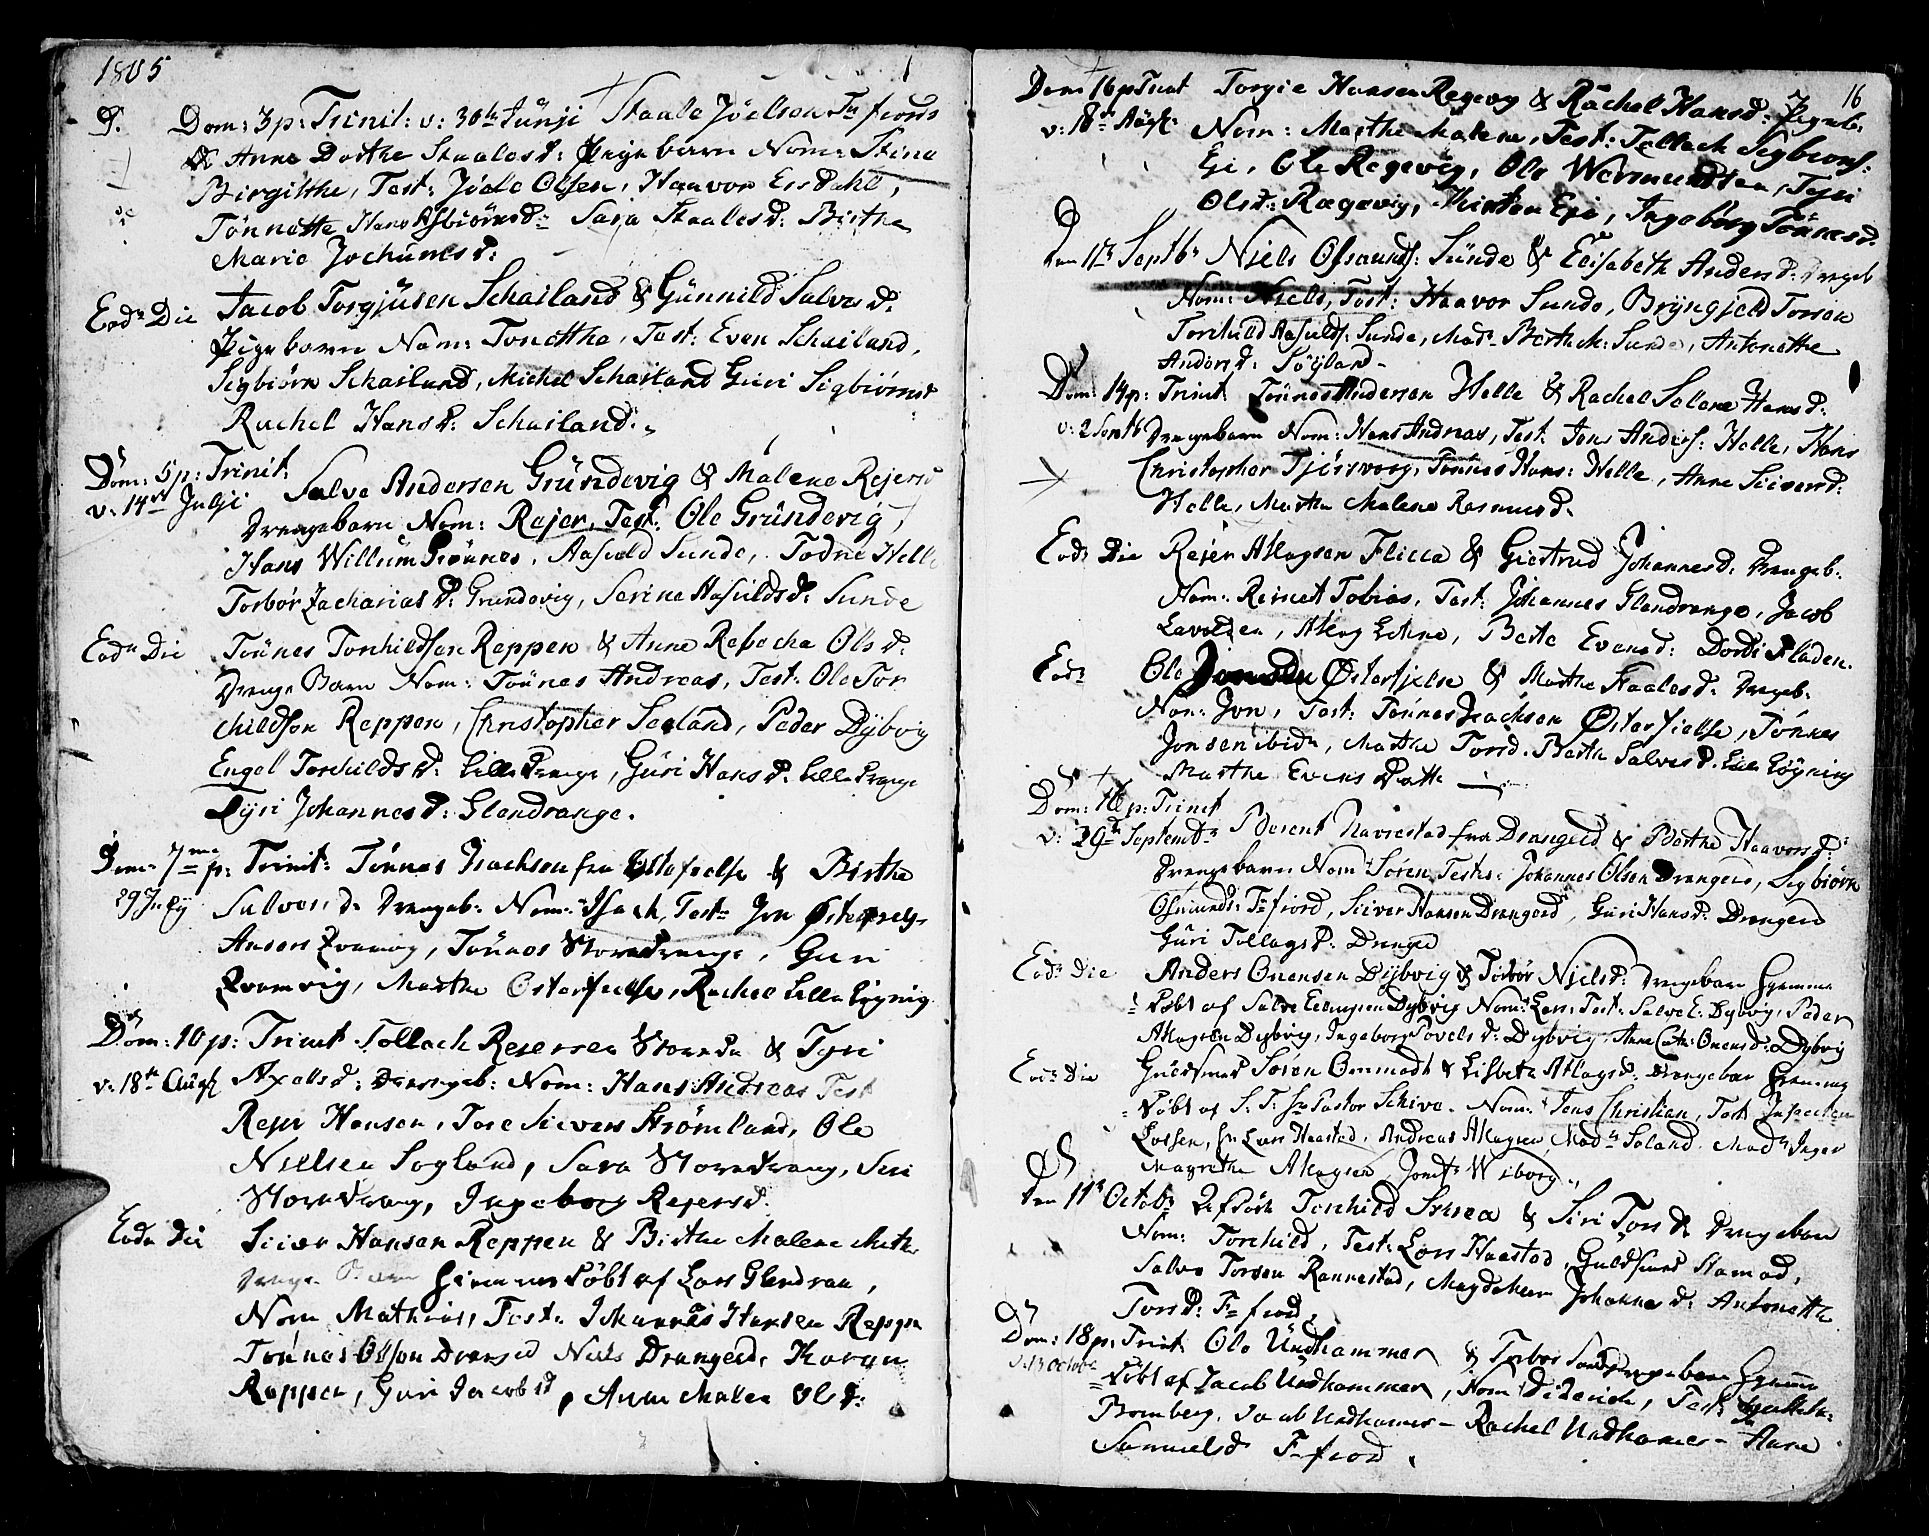 1805
D. Dom: 3 p: Trinit: v: 30te Junji Staale Joelson Fl: fiord
& Anne Dorthe Staalesd: Pigebarn Nom: Stina
Birgitthe, Test: Joele Olsen, Haavor Eisdahl,
Tönnette Hans Asbiörnsd: Sara Staalesd: Birthe
Marie Jochumsd:
Eod: Die Jacob Torgjüsen Schailand & Günnild Salvesd:
Pigebarn Nom: Tonetthe, Test: Even Schailand,
Sigbiörn Schailand, Michel Schailand Guri Sigbiörnsd
Rachel Hansd: Schailand.
Dom: 5 p: Trinit: Salve Andersen Gründevig & Malene Rejersd
v: 14de Julji Drengebarn Nom: Rejer, Test: Ole Gründevig,
Hans Willum Tönnes, Aasuld Sunde, Todne Helle
Torbör Zachariasd: Grundevig, Serine Aasuldsd: Sunde
Eod: Die Tönnes Torkildsen Reppen & Anne Rebecha Olsd:
Drenge Barn Nom: Tönnes Andreas, Test: Ole Tor
childson Reppen, Christopher Seeland, Peder Dybvig
Engel Torchildsd: Lille Drange, Guri Hansd: Lille Drange
Syri Johannesd: Glendrange.
Dom: 7me p: Trinit: Tönnes Isachsen fra Østefielse & Birthe
29 July Salvesd: Drengeb: Nom: Isach, Test: Jon Østefielse
Ansers Qvamvig, Tönnes Storedrange, Guri
Qvamvig, Marthe Osterfielse, Rachel Lille Egning
Dom: 10 p: Trinit Tollach Rejersen Storedr & Tyri
v: 18de Aug Axelsd: Drengeb: Nom: Hans Andreas Test
Rejer Hansen, Tore Sivers Strömland, Ole
Nielsen Sogland, Sara Storedrang, Siri
Storedrang, Ingeborg Rejersd:
Eod: Die Siver Hansen Reppen & Birthe Malene Math:
Drenge Barn Hiemmedöbt af Lars Glendran,
Nom Mathias, Test: Johannes Hansen Reppen
Tönnes Olson Dranged Niels Dranged, Karen
Reppen, Guri Jacobsd, Anne Malen Olsd:
16
Dom 16 p Trinit Torgie Hansen Regevg & Rachel Hansd: Pigeb:
v: 18de Aug: Nom: Marthe Malene, Test: Tollach Sigbiorns:
Eje, Ole Regevig, Ole Wermundsen, Tyri
Olsd: Rægevig, Kirsten Eje, Ingeborg Tönnesd.
Den 1te Septb: Niels Osmunds: Sünde & Elisabeth Andersd: Drengeb
Nom: Niels, Test: Haavor Sunde, Bryngjeld Torson
Torchild Aasulds: Sunde, Mad: Berthe M: Sunde, Antonette
Andersd: Sögland
Dom: 14 p: Trinit Tönnes Andersen Helle & Rachel Selene Hansd:
v: 2 Septb Drengebarn Nom: Hans Andreas, Test: Jens Anders: Helle, Hans
Christopher Tjörsvorg, Tönnes Hans: Helle, Anne Siversd:
Helle, Marthe Malene Rasmusd.
Eod: Die Rejer Atlagsen Flicca & Giertrud Johannesd: Drengeb:
Nom: Reinert Tobias, Test: Johannes Glendrange, Jacob
Lavoldsen, Aberg Lehne, Berte Evensd: Dordi Fladen.
Eod: Ole Jonsen Østerfjelse & Marthe Staalesd: Drengeb:
Nom: Jon, Test: Tönnes Isachsen Østerfielse, Tönnes
Jonsen ibid:, Marthe Torsd: Berthe Salvesd: Lille Egning
Marthe Evens Datt
Dom: 16 p: Trinit
v: 29de Septemb: Berent Naviestad fra Drangeid & Berthe Haavorsd:
Drengebarn Nom: Sören Testes: Johannes Olsen Drangeid, Sigbiörn
Osmunds: Fl: fiord, Siver Hansen Drangeid, Guri Hansd: Drangeid
Guri Tollagsd: Dranged
Eod: Die Anders Onensen Dybvig & Torbör Nielsd: Drengebarn Hiemme
döbt af Salve Dybvig Nom: Lars, Test: Salve E: Dybvig, Peder
Atlagsen Dybvig, Ingeborg Povelsd: Dybvig, Anne Cath: Onensd: Dybvig
Eod: Die Guldsmed Søren Ommodt & Lisbeth Atlagsd: Drengebar Hiemme
döbt af S. T. Hr Pastor Schive. Nom: Jens Christian, Test: Inspecteur
Lassen, Hr Lars Haastad, Andreas Atlagsen, Mad: Søland, Mad: Inger
Magrethe Atlagsen, Jomfr: Wiborg.
Den 11te Octob: Torchild & Siri Torsd: Drengebarn
Nom: Torchild, Test: Lars Haastad, Guldsmed
Salve Torsen Rannestad, Magdelen Johannesd: Antonette
Torsd: Fl: fiord.
Dom: 18 p: Trinit Ole Undhammer & Torbor Drengebarn Hiemme
v: 13 October döbt af Jacob Undhammer, Nom: Diderich, Test:
Bomberg, Jacob Undhamer - Rachel Undhamer - Anne
Samuelsd Fl fiord.